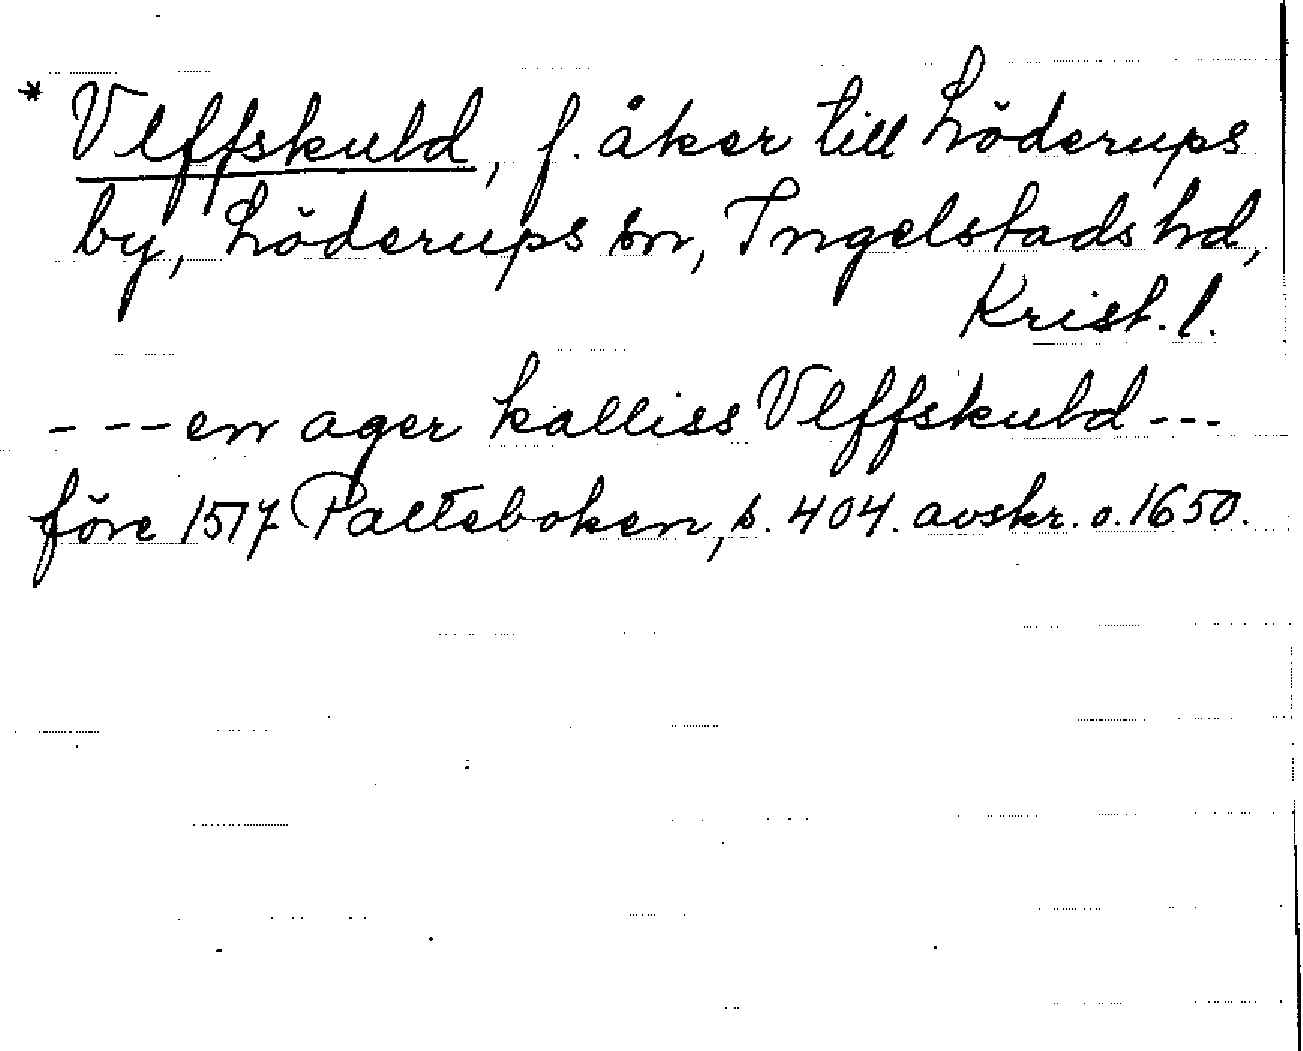 * Vlffskuld, f. åker till Löderups
by, Löderups sn, Ingelstads hd,
Krist. l.
- - - en ager kalliss Vlffskuld - - -
före 1517 Palteboken, s. 404. avskr. o. 1650.